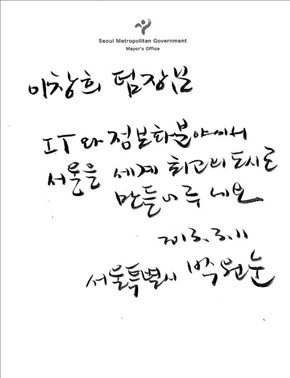 Seoul Metropolitan Government
Mayor's Office
이창희 팀장님
IT와 정보화분야에서
서울을 세계 최고의 도시로
만들어주세요
2013. 3. 11
서울특별시 박원순